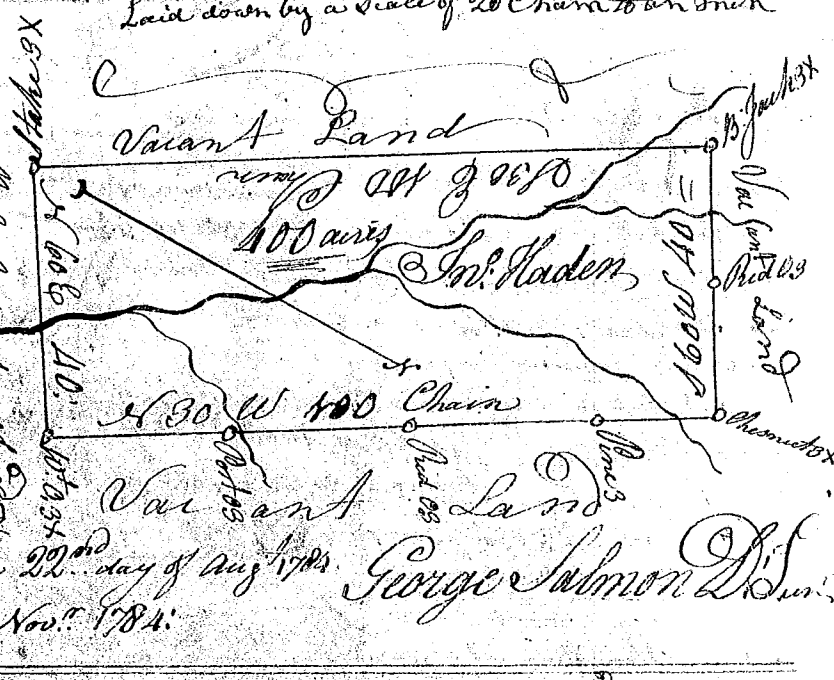 Laid down by a Scale of 20 Chain to an Inch
Stake 3X
Vacant Land
B. Jack 3X
S 30 E 100 Chain
400 acres
Jno. Haden
N 60 E 40.
S 60 W 40
Vac ant Land
Red O3
N 30 W 100 Chain
Chesnut 3X
Wt. O 3X
Post O3
Red O3
Pine 3
Vacant Land
22nd day of Augt 1784
George Salmon D. Sur.
Novr. 1784: